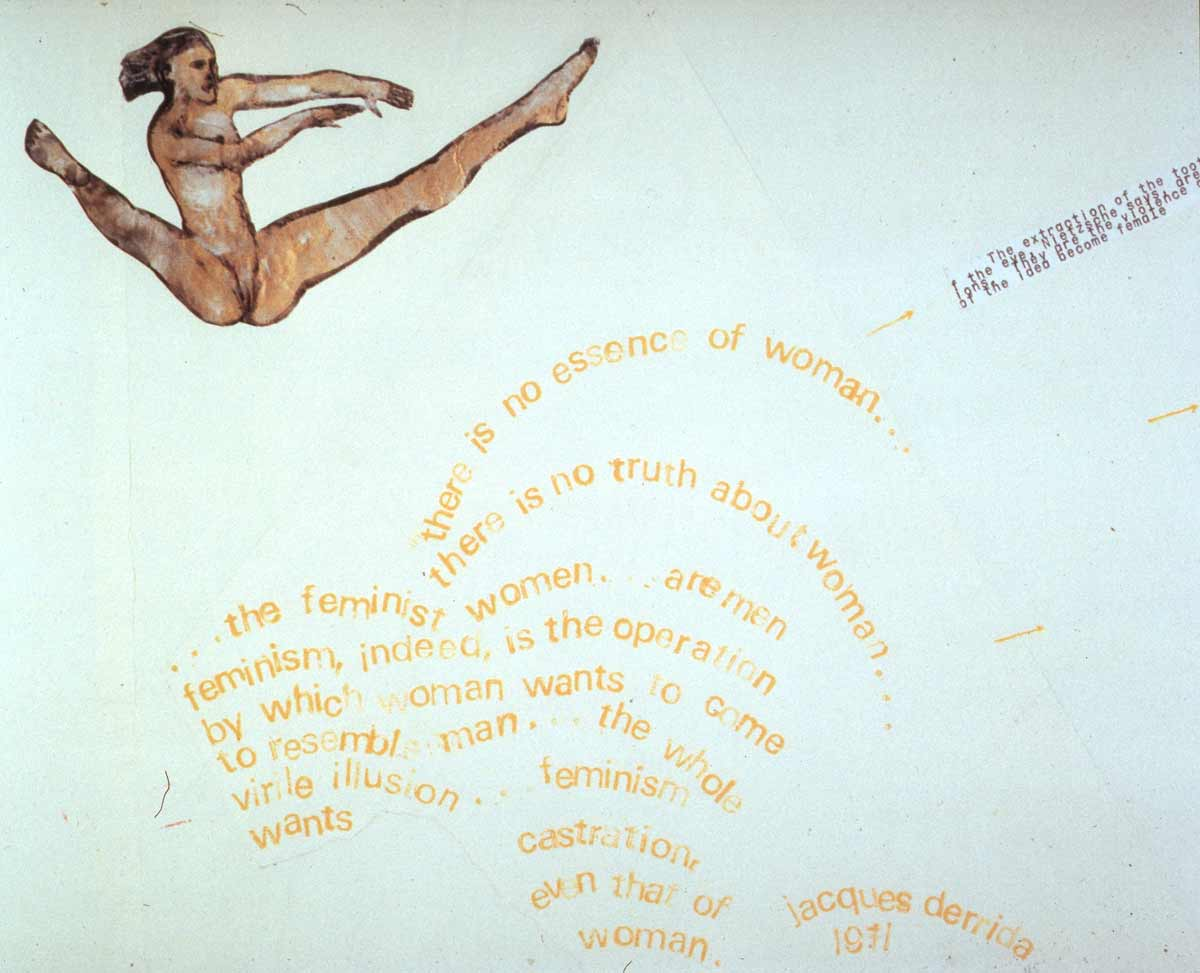 The extraction of the toot
f the eye, Nietzsche says, are
ions. They are the violence
of the idea become female
"there is no essence of woman...
there is no truth about woman....
...the feminist women... are men
feminism, indeed, is the operation
by which woman wants to come
to resemble man... the whole
virile illusion... feminism
wants castration,
even that of
woman.
jacques derrida
1971